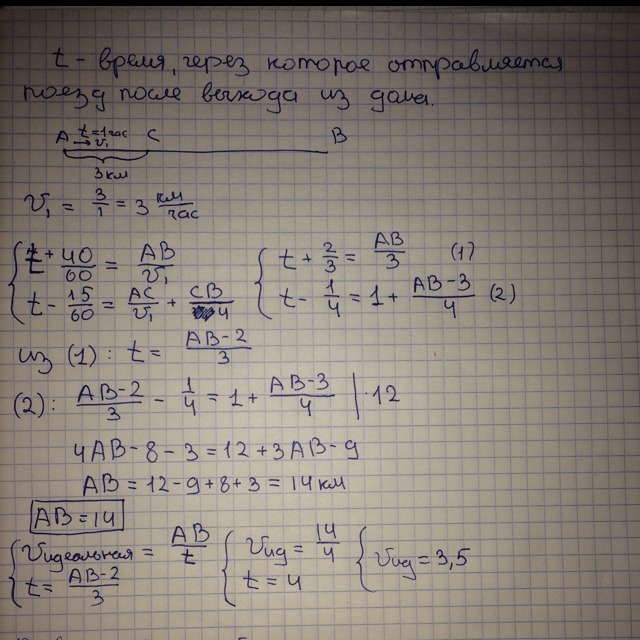 t - время, через которое отправляется
поезд после выхода из дома.
A t=1час C B
→ v₁
3км
v₁ = 3/1 = 3 км/час
{ t + 40/60 = AB/v₁ { t + 2/3 = AB/3 (1)
t - 15/60 = AC/v₁ + CB/4 t - 1/4 = 1 + AB-3/4 (2)
из (1): t = AB-2/3
(2): AB-2/3 - 1/4 = 1 + AB-3/4 | ·12
4AB - 8 - 3 = 12 + 3AB - 9
AB = 12 - 9 + 8 + 3 = 14 км
AB = 14
{ vидеальная = AB/t { vид = 14/4 { vид = 3,5
t = AB-2/3 t = 4